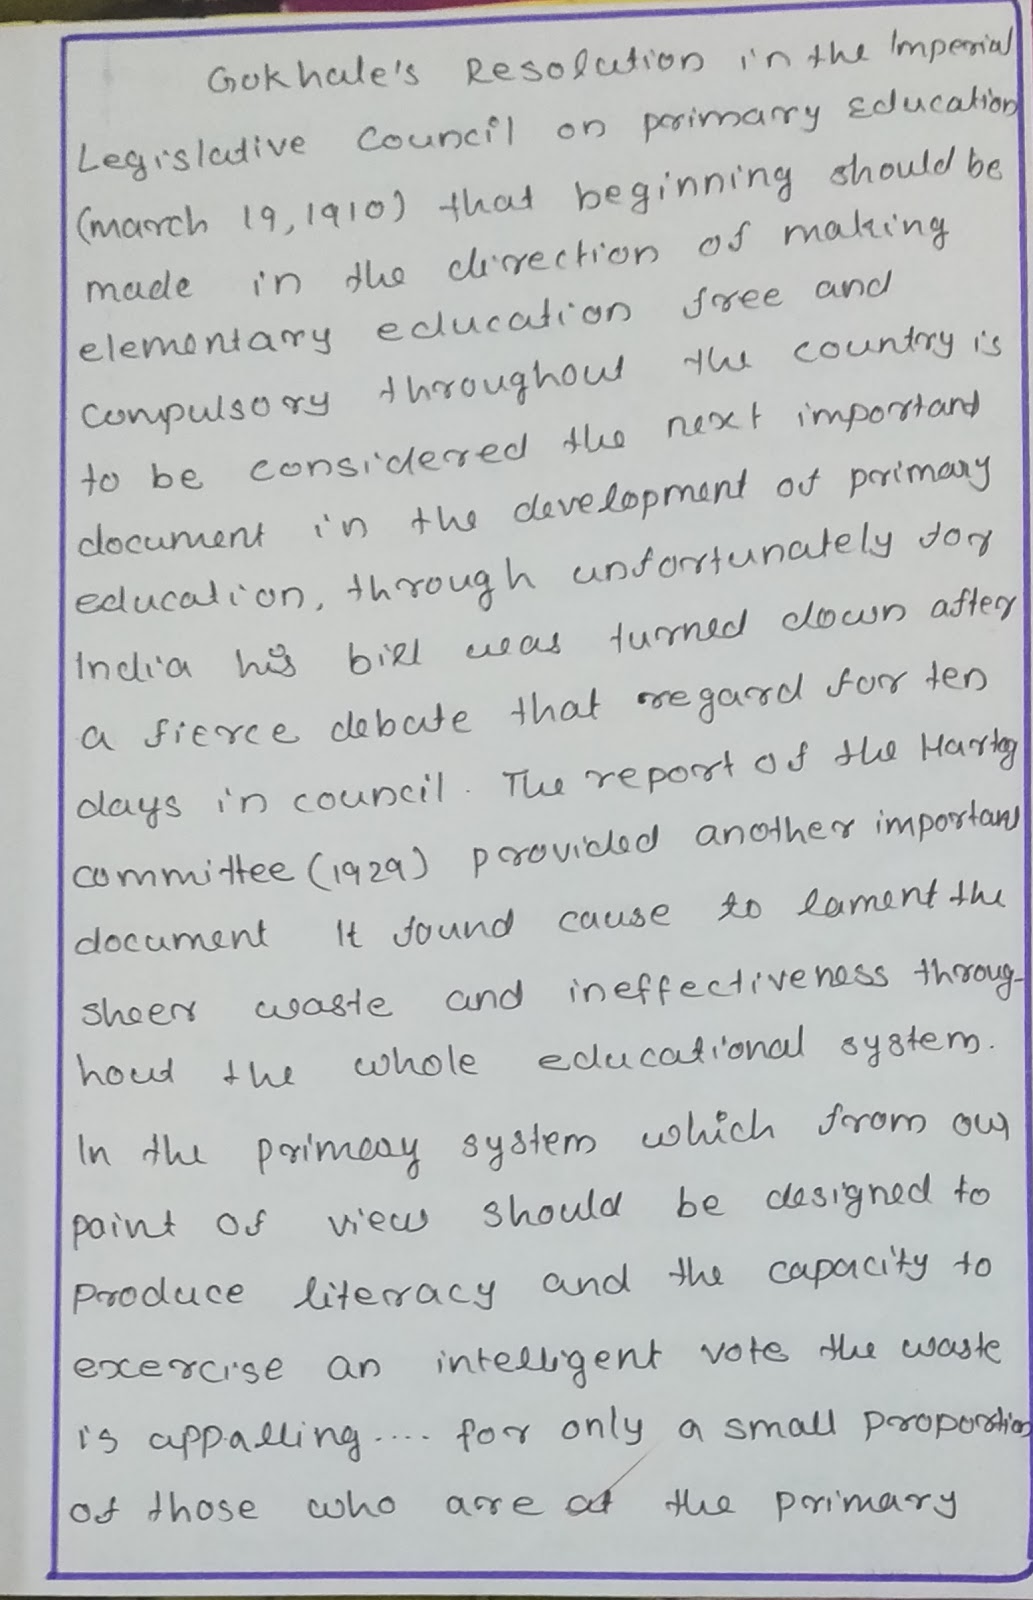 Gokhale's Resolution in the Imperial
Legislative Council on primary Education
(march 19, 1910) that beginning should be
made in the direction of making
elementary education free and
compulsory throughout the country is
to be considered the next important
document in the development of primary
education, through unfortunately for
India his bill was turned down after
a fierce debate that regard for ten
days in council. The report of the Hartog
committee (1929) provided another important
document It found cause to lament the
sheer waste and ineffectiveness throug-
hout the whole educational system.
In the primeay system which from our
paint of view should be designed to
produce literacy and the capacity to
exercise an intelligent vote the waste
is appalling.... for only a small proportion
of those who are at the primary